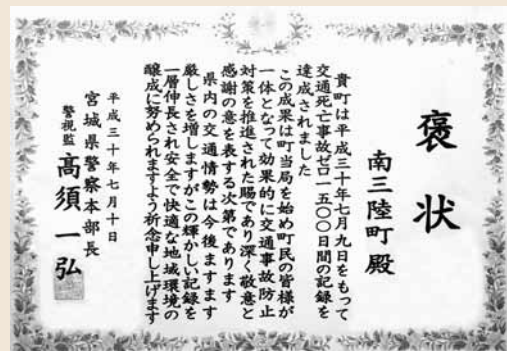 褒状
南三陸町殿
貴町は平成三十年七月九日をもって
交通死亡事故ゼロ一五〇〇日間の記録を
達成されました
この成果は町当局を始め町民の皆様が
一体となって効果的に交通事故防止
対策を推進された賜であり深く敬意と
感謝の意を表する次第であります
県内の交通情勢は今後ますます
厳しさを増しますがこの輝かしい記録を
一層伸長され安全で快適な地域環境の
醸成に努められますよう祈念申し上げます
平成三十年七月十日
宮城県警察本部長
警視監 髙須一弘